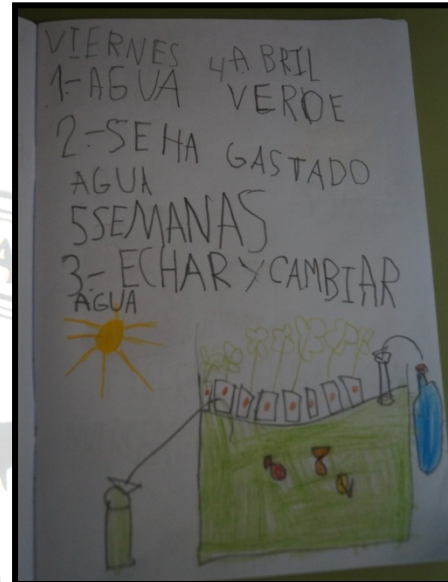 VIERNES 4 ABRIL
1-AGUA VERDE
2.-SE HA GASTADO
AGUA
5 SEMANAS
3.- ECHAR Y CAMBIAR
AGUA